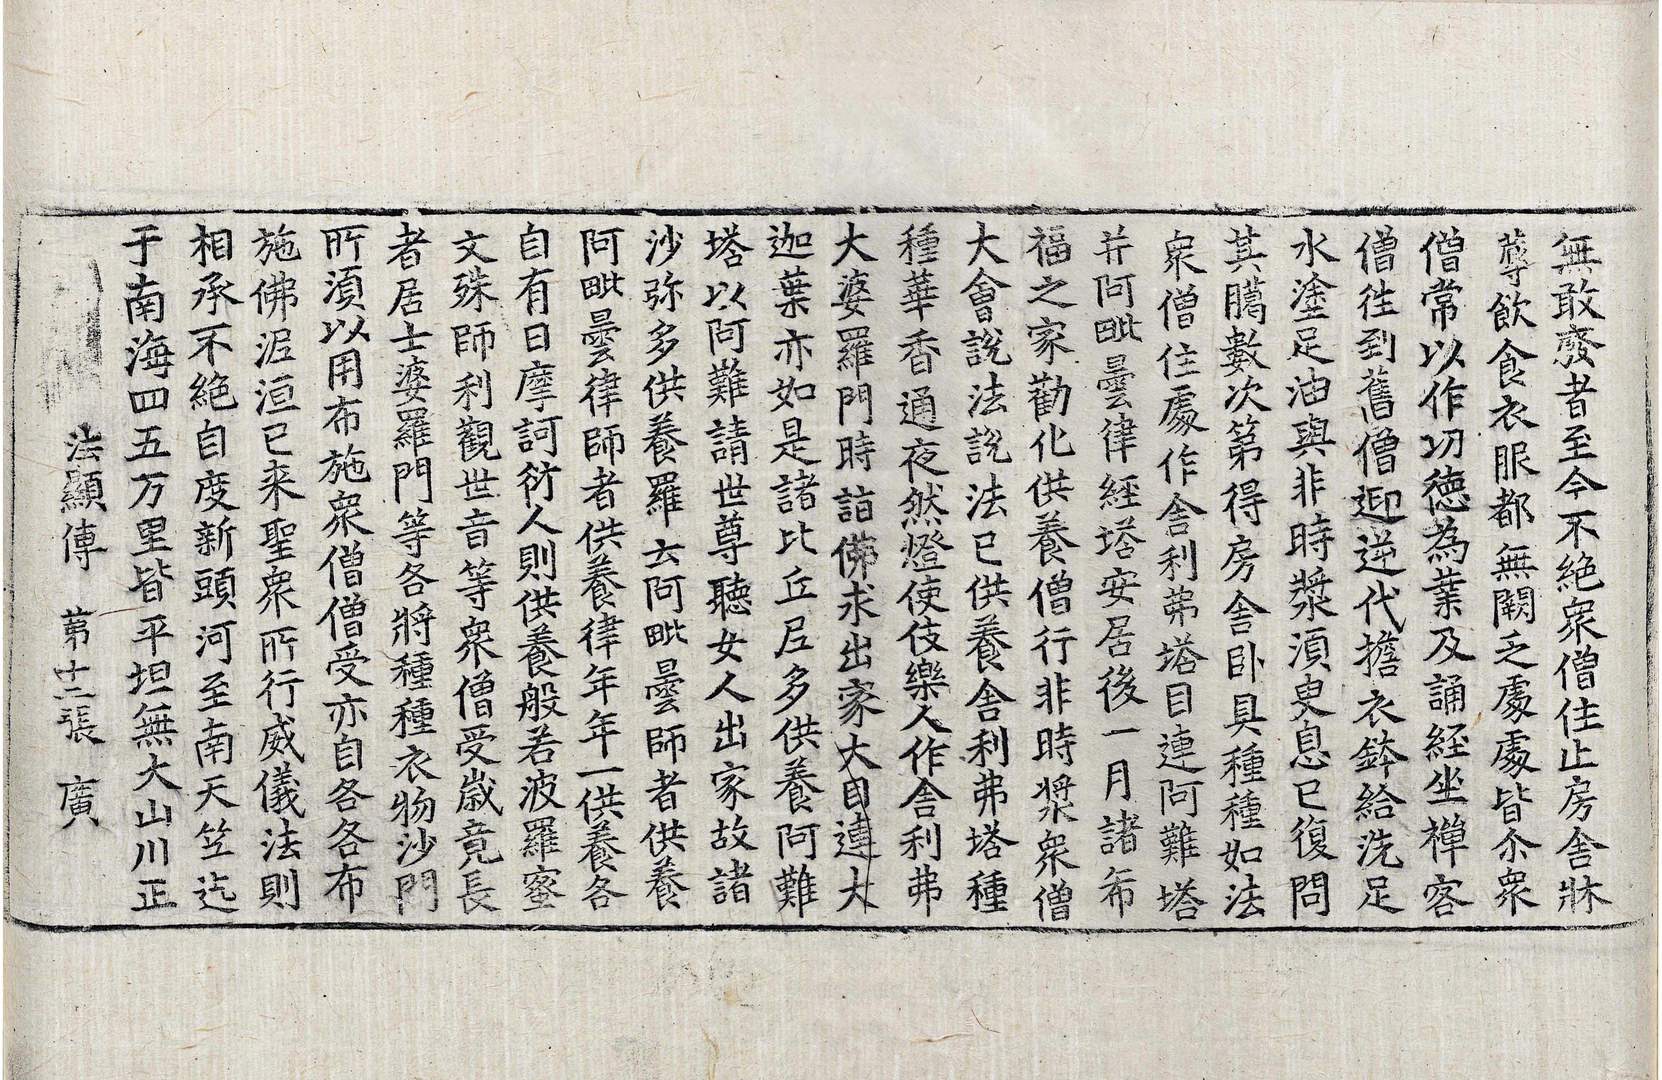 無敢廢者至今不絶衆僧住止房舎牀
蓐飲食衣服都無闕乏處處皆尒衆
僧常以作功徳為業及誦經坐禅客
僧往到舊僧迎逆代擔衣鉢給洗足
水塗足油與非時漿湏臾息已復問
其臈數次第得房舎卧具種種如法
衆僧住處作舎利弗塔目連阿難塔
并阿毗曇律經塔安居後一月諸希
福之家勸化供養僧行非時漿衆僧
大會說法說法已供養舎利弗塔種
種華香通夜然燈使伎樂人作舎利弗
大婆羅門時詣佛求出家大目連大
迦葉亦如是諸比丘尼多供養阿難
塔以阿難請世尊聽女人出家故諸
沙弥多供養羅云阿毗曇師者供養
阿毗曇律師者供養律年年一供養各
自有日摩訶衍人則供養般若波羅蜜
文殊師利觀世音等衆僧受歲竟長
者居士婆羅門等各將種種衣物沙門
所湏以用布施衆僧僧受亦自各各布
施佛泥洹已来聖衆所行威儀法則
相承不絶自度新頭河至南天竺迄
于南海四五万里皆平坦無大山川正
法顯傳 第十二張 廣